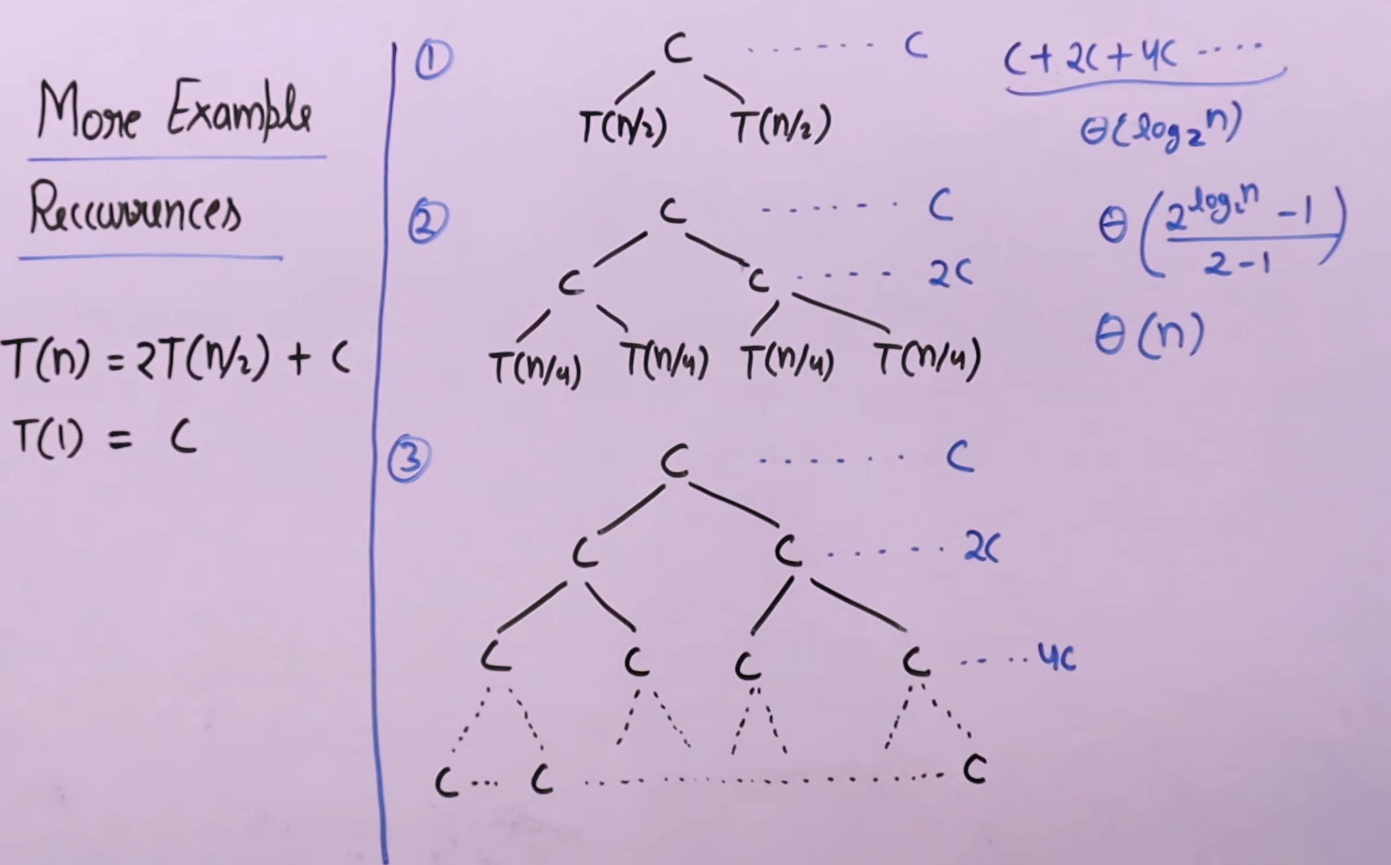 More Example
Reccurrences
T(n) = 2T(n/2) + C
T(1) = C
① C ...... C
T(n/2) T(n/2)
② C ...... C
C C .... 2C
T(n/4) T(n/4) T(n/4) T(n/4)
③ C ...... C
C C ...... 2C
C C C C ..... 4C
C ... C .................... C
C + 2C + 4C ....
Θ(log₂n)
Θ((2^log₂n - 1)/(2 - 1))
Θ(n)